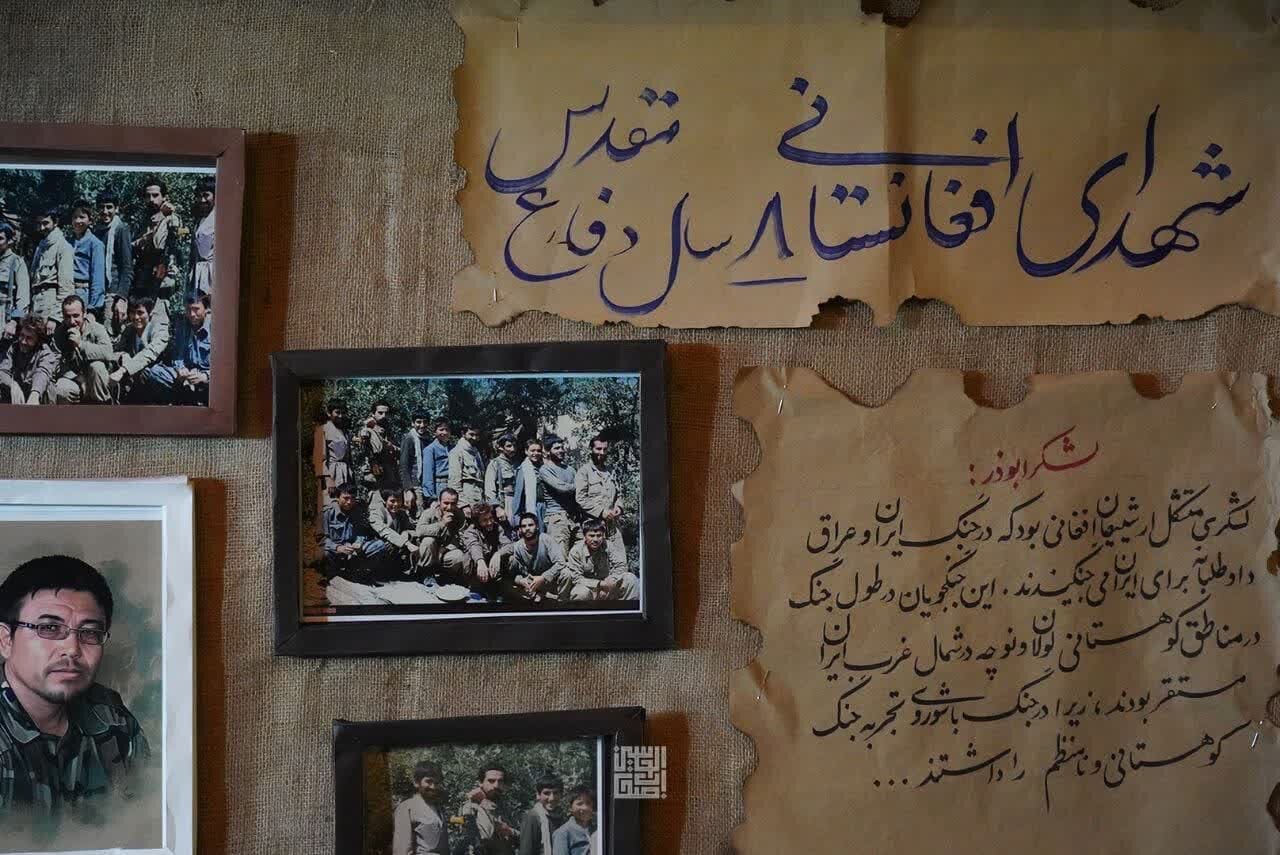 شهدای افغانستانی ۸ سال دفاع مقدس
لشکر ابوذر:
لشکری متشکل از شیعیان افغانی بود که در جنگ ایران و عراق
داوطلبانه برای ایران می جنگیدند. این جنگجویان در طول جنگ
در مناطق کوهستانی لولان و نوچه در شمال غرب ایران
مستقر بودند، زیرا در جنگ با شوروی تجربه جنگ
کوهستانی و نامنظم را داشتند ...